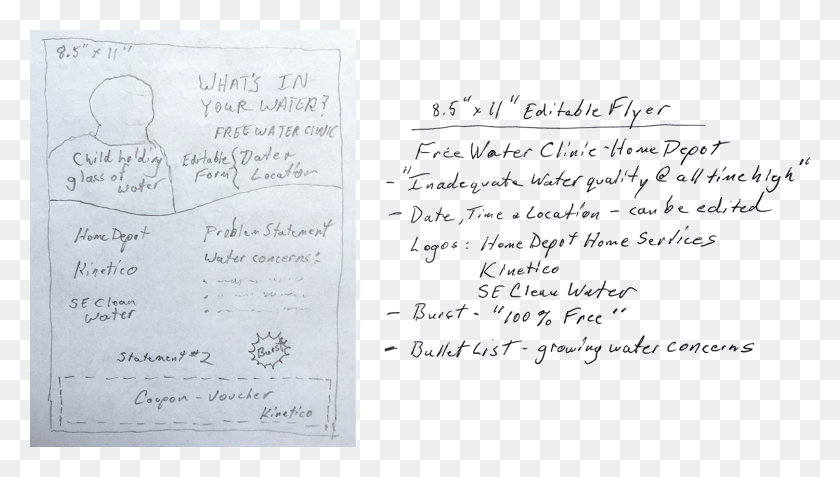 8.5" x 11"
WHAT'S IN
YOUR WATER?
FREE WATER CLINIC
Child holding
glass of
water
Editable
Form
Date
Location
Home Depot
Kinetico
SE Clean
Water
Problem Statement
Water concerns:
Statement #2
Burst
Coupon - Voucher
Kinetico
8.5" x 11" Editable Flyer
Free Water Clinic - Home Depot
- "Inadequate water quality @ all time high"
- Date, Time & Location - can be edited
Logos: Home Depot Home Services
Kinetico
SE Clean Water
- Burst - "100% Free"
- Bullet List - growing water concerns